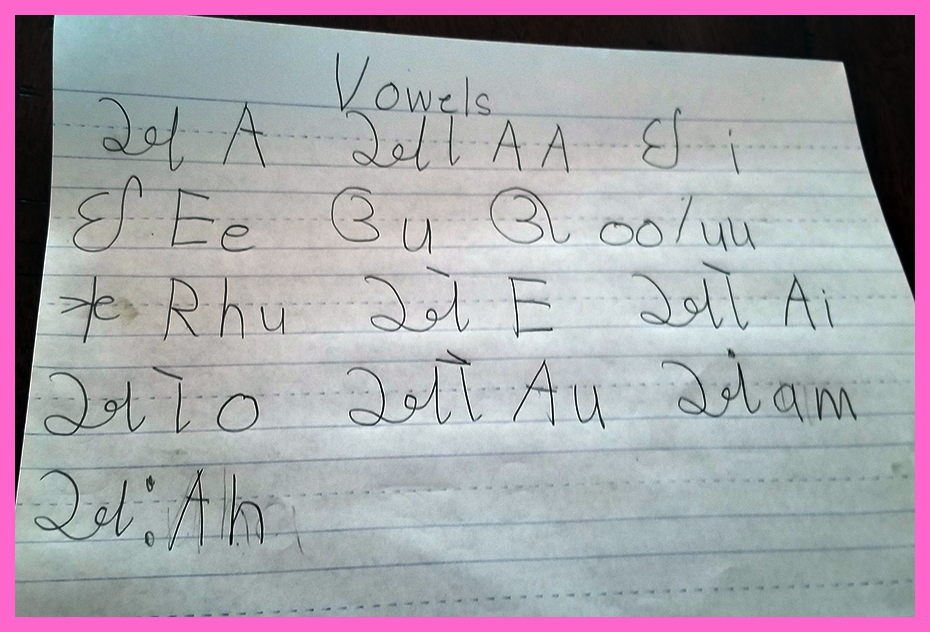 Vowels
અ A આ AA ઇ i
ઈ Ee ઉ u ઊ oo/uu
ઋ Rhu એ E ઐ Ai
ઓ O ઔ Au અં am
અ: Ah